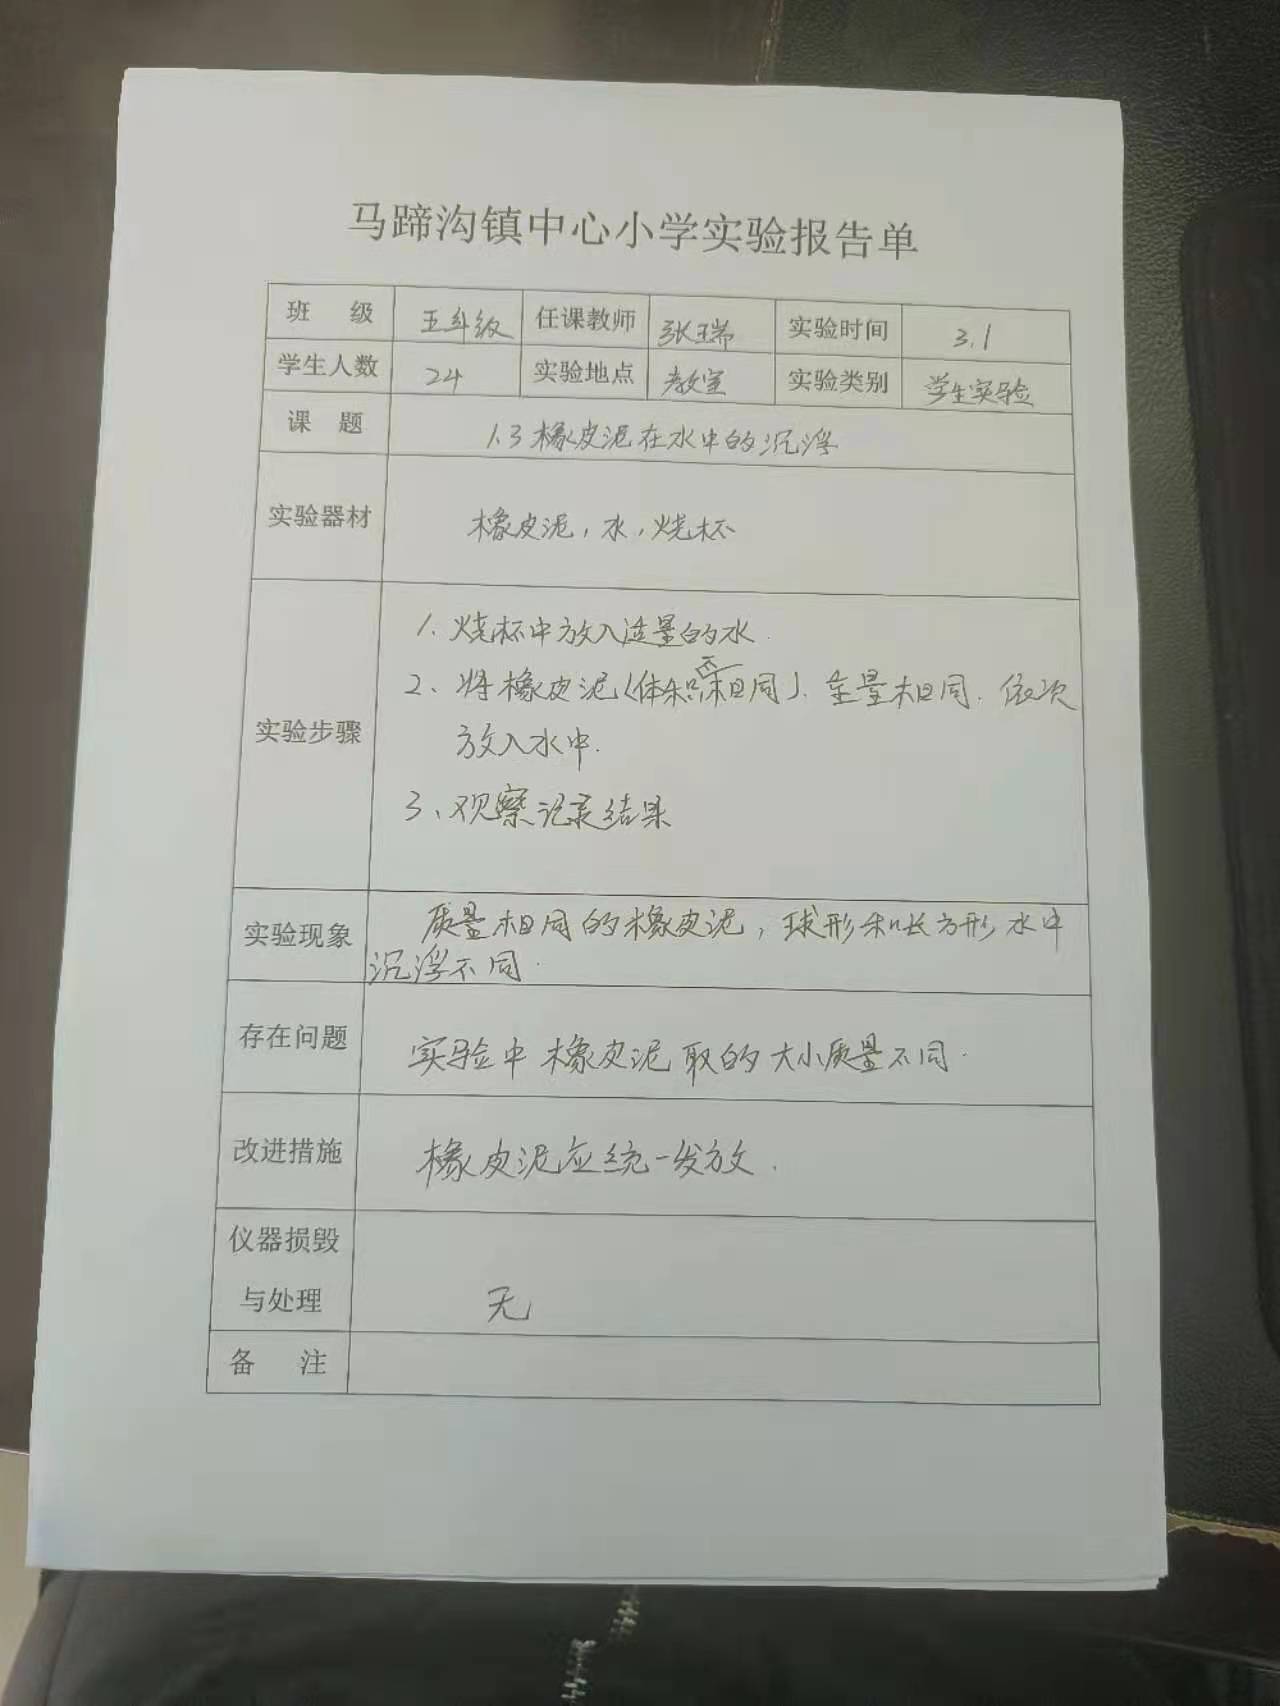 马蹄沟镇中心小学实验报告单
班 级 五年级 任课教师 张瑞 实验时间 3.1
学生人数 24 实验地点 教室 实验类别 学生实验
课 题 1.3橡皮泥在水中的沉浮
实验器材 橡皮泥,水,烧杯
实验步骤
1. 烧杯中放入适量的水.
2、将橡皮泥(体积不相同)、重量相同.依次
放入水中.
3、观察记录结果
实验现象 质量相同的橡皮泥,球形和长方形水中
沉浮不同.
存在问题 实验中橡皮泥取的大小质量不同.
改进措施 橡皮泥应统一发放.
仪器损毁
与处理 无
备 注